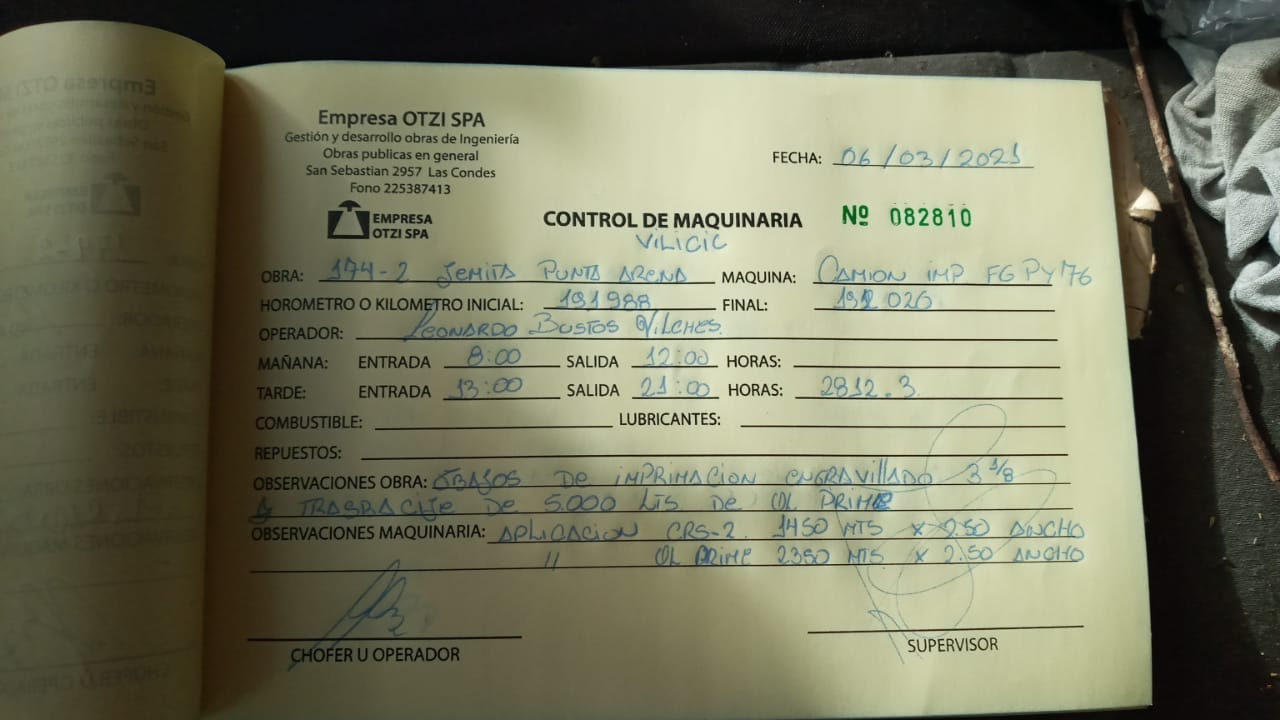 Empresa OTZI SPA
Gestión y desarrollo obras de Ingeniería
Obras publicas en general
San Sebastian 2957 Las Condes
Fono 225387413
EMPRESA
OTZI SPA
FECHA: 06/03/2021
CONTROL DE MAQUINARIA Nº 082810
VILICIC
OBRA: 174-2 Jemita PUNTA ARENA MAQUINA: CAMION IMP FGPY76
HOROMETRO O KILOMETRO INICIAL: 191988 FINAL: 192026
OPERADOR: LEONARDO BUSTOS VILCHES
MAÑANA: ENTRADA 8:00 SALIDA 12:00 HORAS:
TARDE: ENTRADA 13:00 SALIDA 21:00 HORAS: 2812.3
COMBUSTIBLE: LUBRICANTES:
REPUESTOS:
OBSERVACIONES OBRA: DE IMPRIMACION ENGRAVILLADO 3 3/8
DE 5.000 LTS DE QL PRIME
OBSERVACIONES MAQUINARIA: APLICACION CRS-2 1450 MTS X 2.50 ANCHO
11 QL PRIME 2350 MTS X 2.50 ANCHO
CHOFER U OPERADOR
SUPERVISOR